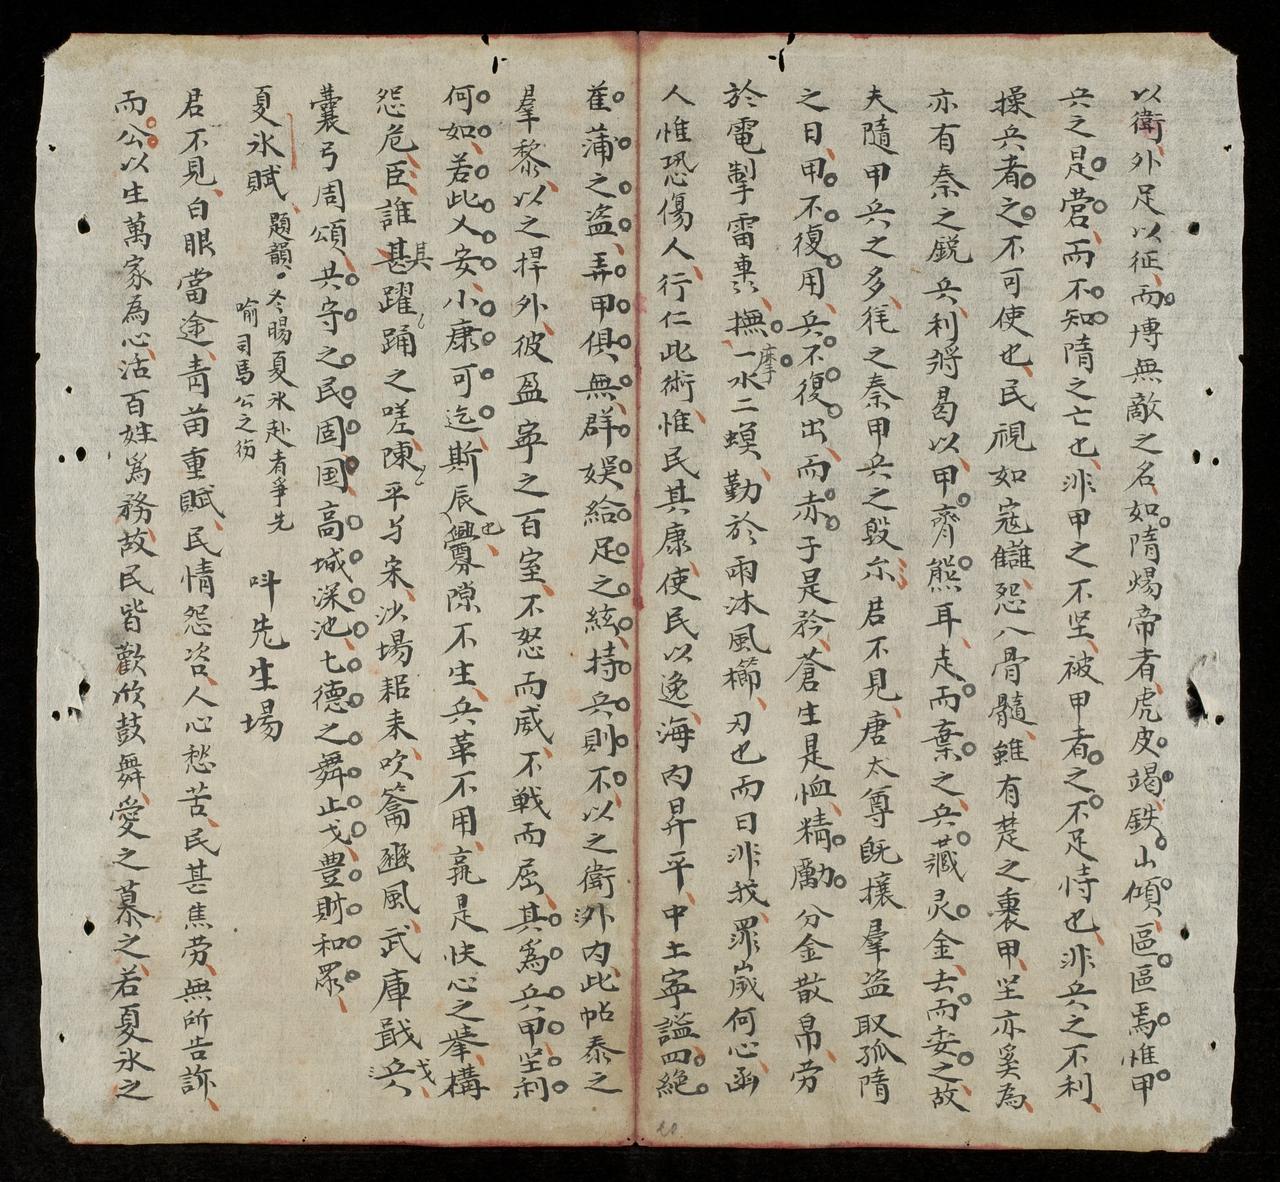 以衛外足以征而博無敵之名如隋煬帝者虎皮竭鉄山傾區區焉惟甲
兵之是营而不知隋之亡也非甲之不坚被甲者之不足恃也非兵之不利
操兵者之不可使也民視如寇讎怨入骨髓雖有楚之裹甲坚亦奚為
亦有秦之鋭兵利將曷以甲齊熊耳走而棄之兵藏灵金去而委之故
夫隨甲兵之多徃之秦甲兵之毀尔君不見唐太尊既攘羣盜取孤隋
之日甲不復用兵不復出而赤子是矜蒼生是恤精勵分金散帛勞
於電掣雷轟撫摩一水二蟆勤於雨沐風櫛刃也而曰非我罪歲何心函
人惟恐傷人行仁此術惟民其康使民以逸海内昇平中土寧謐四絶
萑蒲之盜弄甲俱無群娱給足之絃持兵則不以之衛外内此帖泰之
羣黎以之捍外彼盈寧之百室不怒而威不戦而屈其為兵甲坚利
何如若此乂安小康可迄斯辰也興釁隙不生兵革不用孰是快心之舉構
怨危臣誰甚具躍踊之嗟陳平与宋沙場耜耒吹籥豳風武庫戢兵戈
囊弓周頌共守之民固国高城深池七德之舞止戈豊財和眾
夏氷賦 題韻冬暘夏氷赴者争先
喻司馬公之衍
呌先生場
君不見白眼當途青苗重賦民情怨咨人心愁苦民甚焦劳無所告訴
而公以生萬家為心活百姓為務故民皆歡欣鼓舞愛之慕之若夏氷之